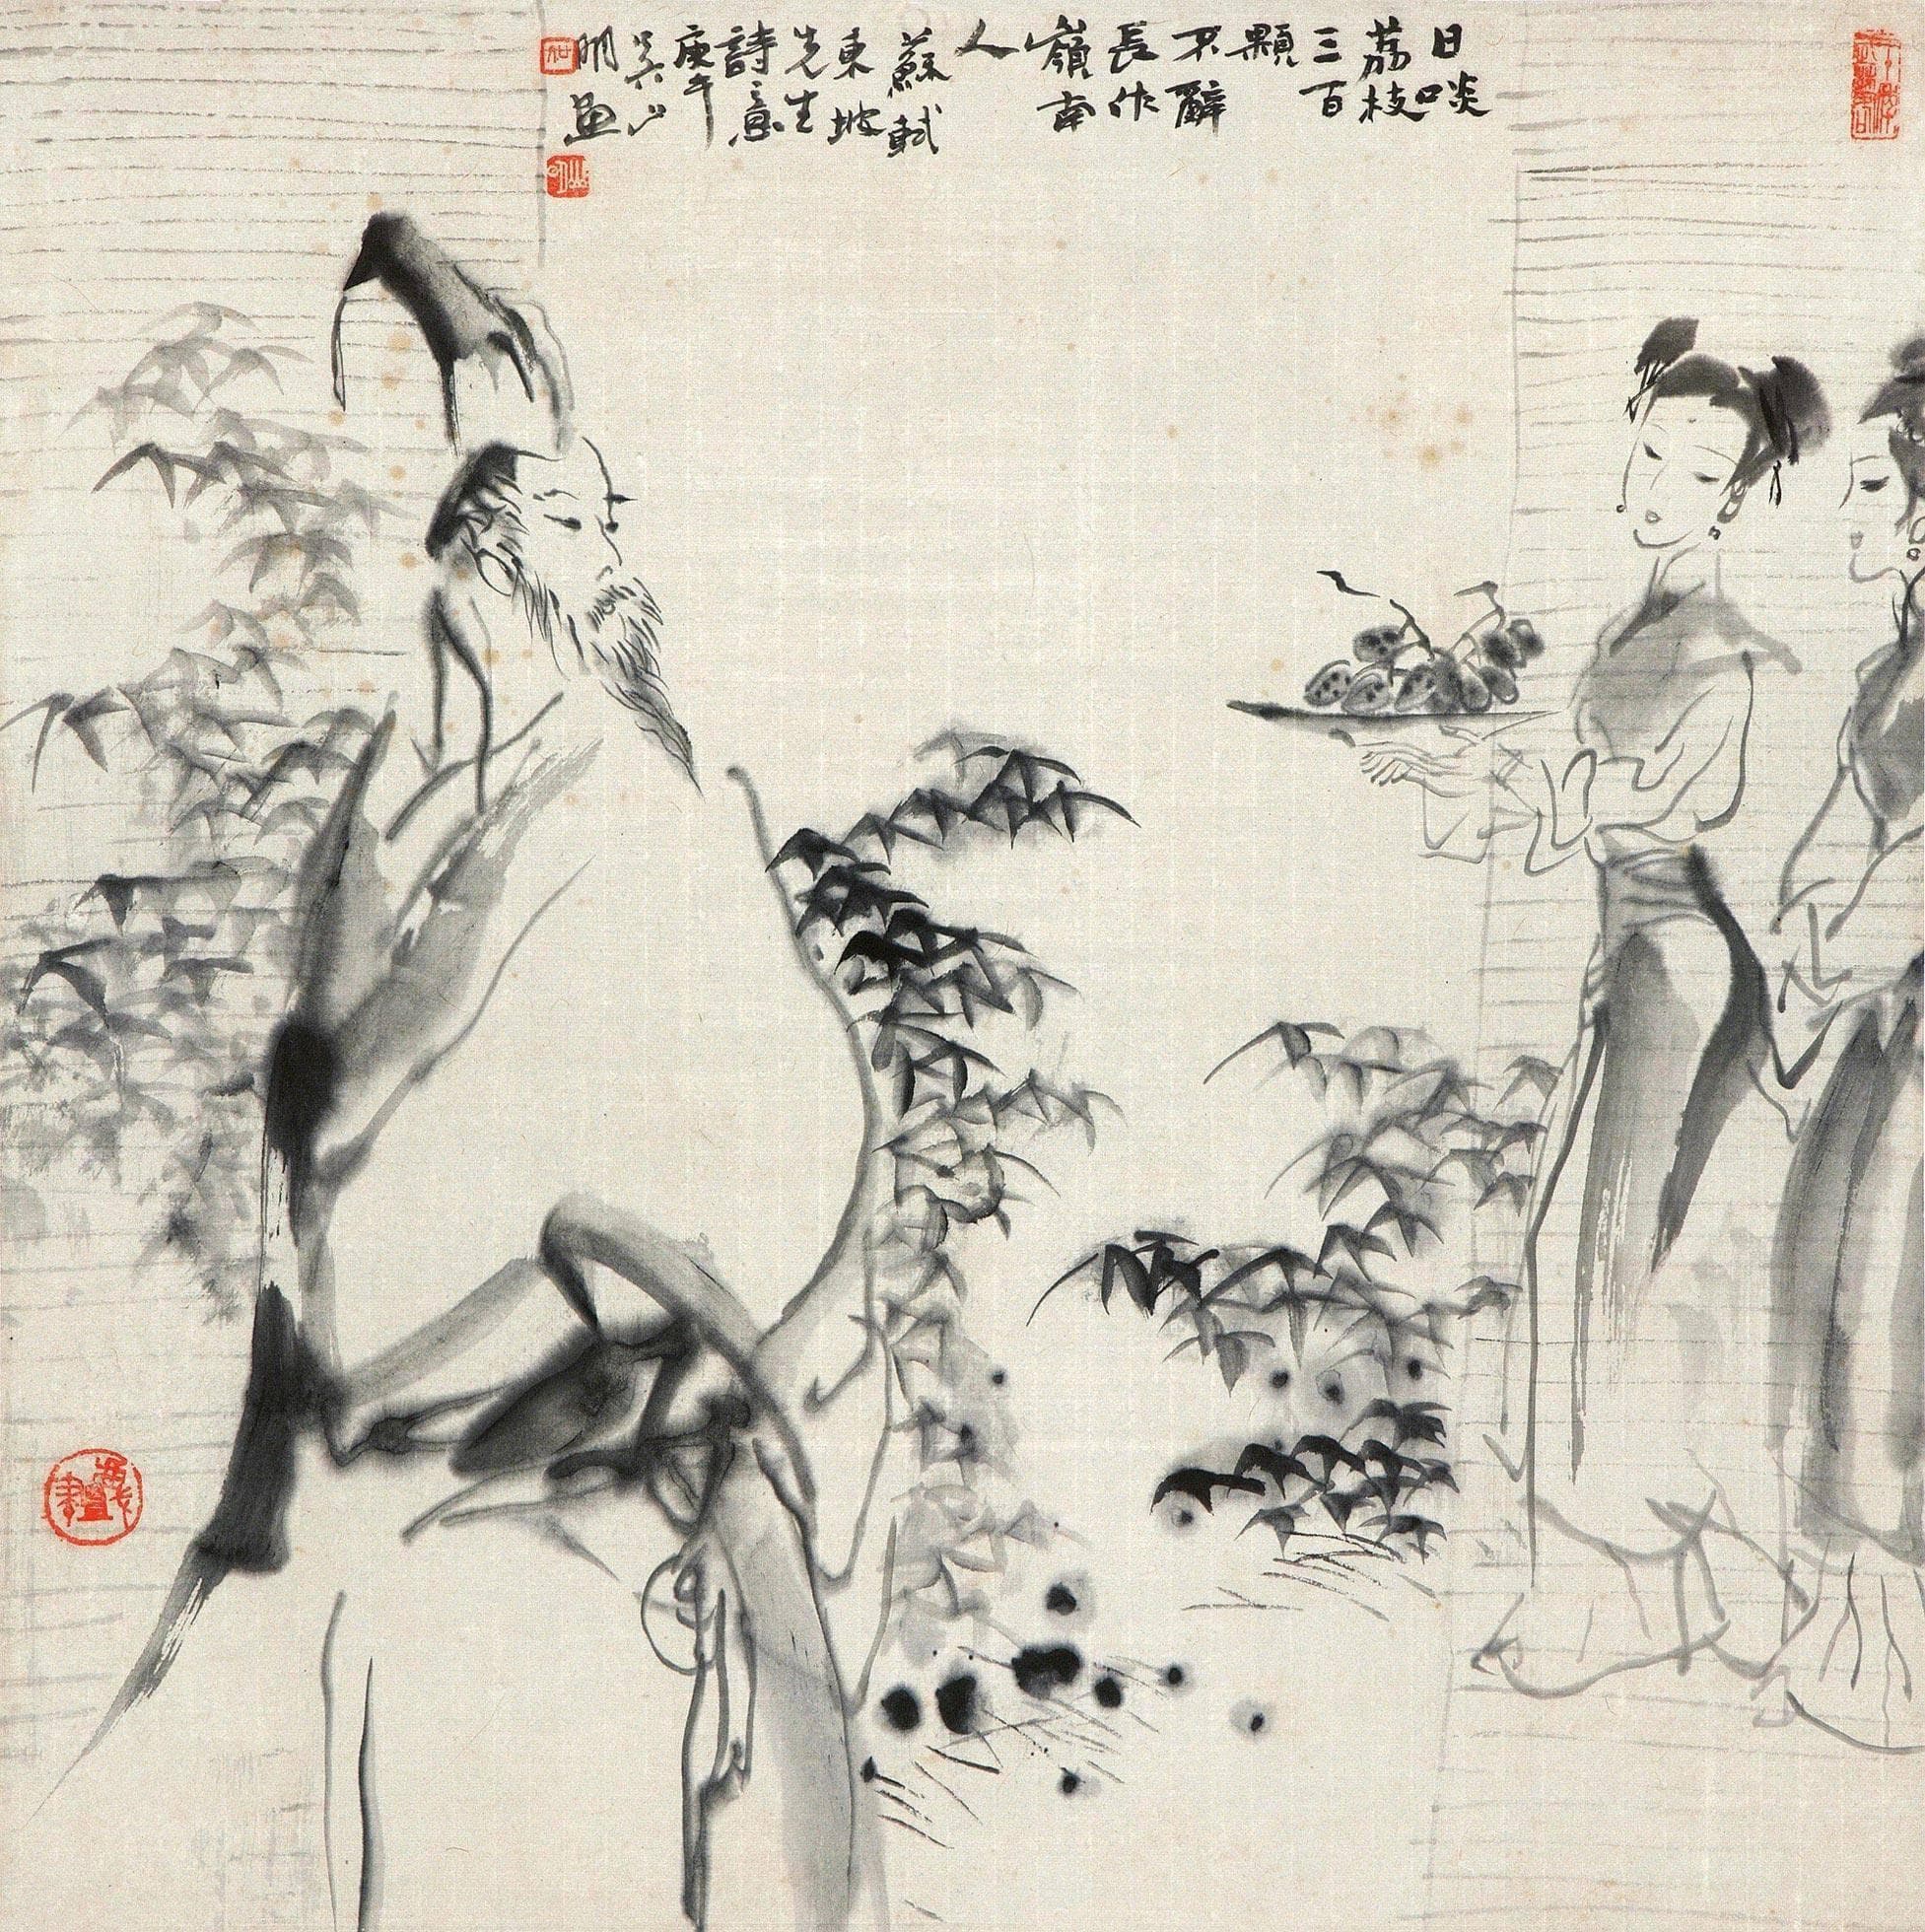 日啖
荔枝
三百
顆
不辭
長作
嶺南
人
蘇軾
東坡
先生
詩意
庚午
吳山
明畫